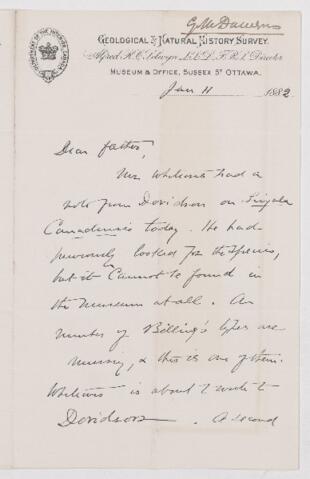 G M Dawson
GEOLOGICAL & NATURAL HISTORY SURVEY.
Alfred R. C. Selwyn, L.L.D., F.R.S., Director
MUSEUM & OFFICE, SUSSEX ST OTTAWA.
Jan 11 1882
Dear father,
Mr Whiteaves had a
note from Davidson on Lingula
Canadensis today. He had
previously looked for the species,
but it cannot be found in
the museum at all. A
number of Billing's types are
missing, & this is one of them.
Whiteaves is about to write to
Davidson. A second